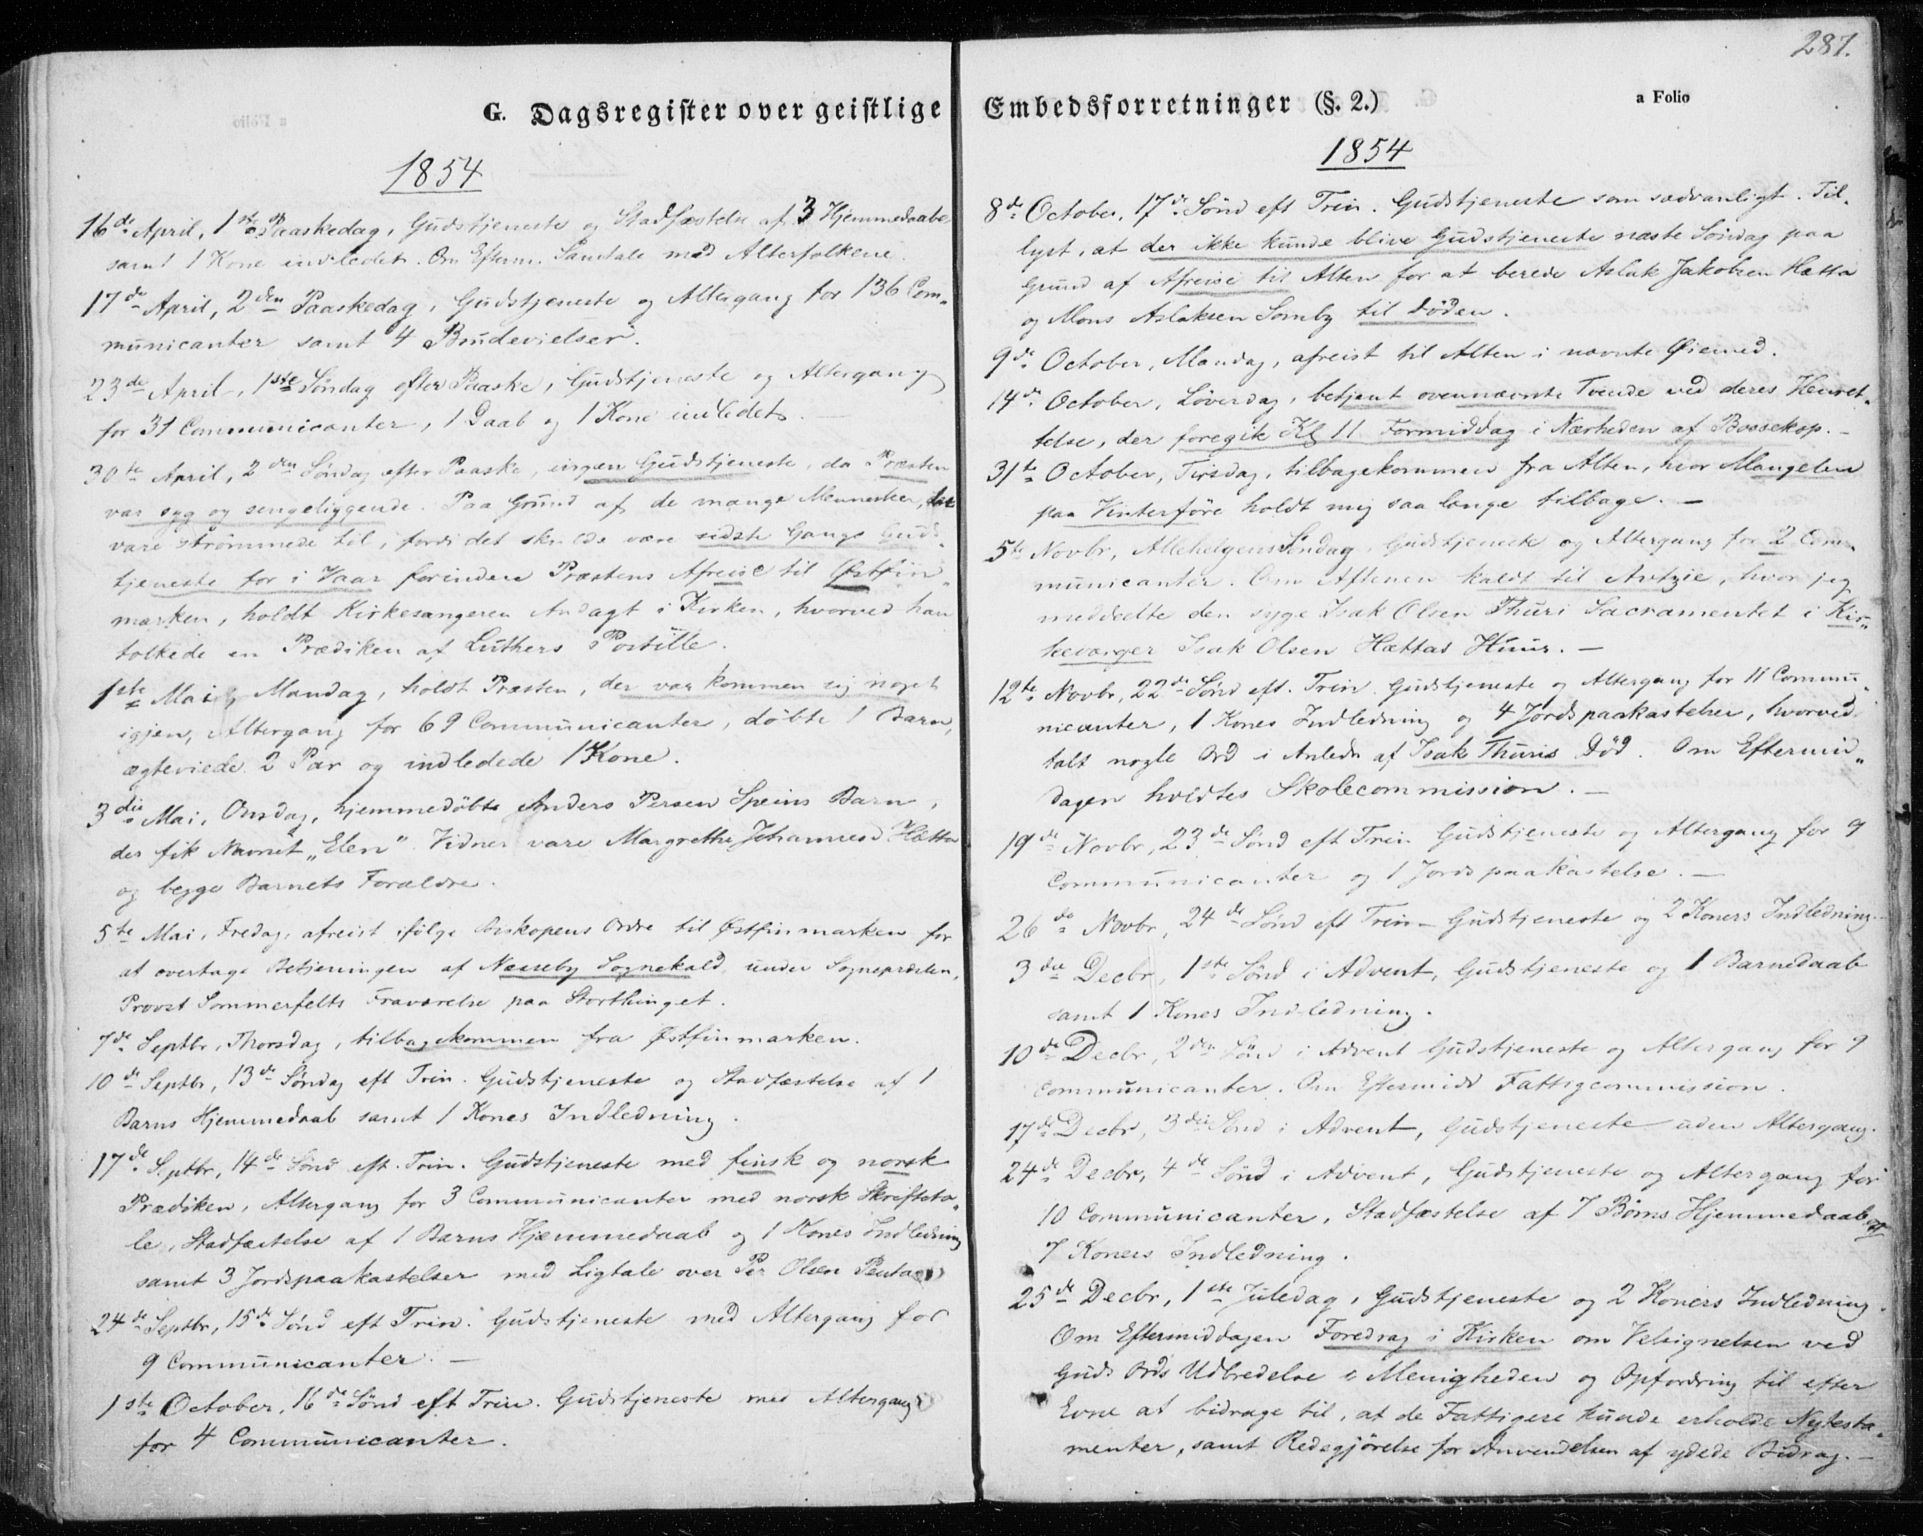 287.
G. Dagsregister over geistlige Embedsforretninger (§. 2.) a Folio
1854
16de April, 1ste Paaskedag, Gudstjeneste og Stadfæstelse af 3 Hjemmedaabe
samt 1 Kone indledet. Om Efterm. Samtale med Alterfolkene.
17de April, 2den Paaskedag, Gudstjeneste og Altergang for 136 Com-
municanter samt 4 Brudevielser.
23de April, 1ste Søndag efter Paaske, Gudstjeneste og Altergang
for 31 Communicanter, 1 Daab og 1 Kone indledet.
30te April, 2den Søndag efter Paaske, ingen Gudstjeneste, da Præsten
var syg og sengeliggende. Paa Grund af de mange Mennesker, der
vare strømmede til, fordi det skulde være sidste Gangs Guds-
tjeneste for i Vaar forinden Præstens Afreise til Østfin-
marken, holdt Kirkesangeren Andagt i Kirken, hvorved han
tolkede en Prædiken af Luthers Postille.
1ste Mai, Mandag, holdt Præsten, der var kommen sig noget
igjen, Altergang for 69 Communicanter, døbte 1 Barn,
ægteviede 2 Par og indledede 1 Kone.
3die Mai, Onsdag, hjemmedøbte Anders Persen Speins Barn,
der fik Navnet „Elen”. Vidner vare Margrethe Johannesd Hætta
og begge Barnets Forældre.
5te Mai, Fredag, afreist ifølge Biskopens Ordre til Østfinmarken for
at overtage Betjeningen af Næsseby Sognekald under Sognepræsten,
Provst Sommerfelts Fraværelse paa Storthinget.
7de Septbr, Thorsdag, tilbagekommen fra Østfinmarken.
10de Septbr, 13de Søndag eft Trin. Gudstjeneste og Stadfæstelse af 1
Barns Hjemmedaab samt 1 Kones Indledning.
17de Septbr, 14de Sønd eft. Trin. Gudstjeneste med finsk og norsk
Prædiken, Altergang for 3 Communicanter med norsk Skrifteta-
le, Stadfæstelse af 1 Barns Hjemmedaab og 1 Kones Indledning
samt 3 Jordspaakastelser med Ligtale over Per Olsen
24de Septbr, 15de Sønd eft Trin. Gudstjeneste med Altergang for
9 Communicanter. –
1ste October, 16de Sønd eft Trin. Gudstjeneste med Altergang
for 4 Communicanter.
1854
8de October, 17de Sønd eft Trin. Gudstjeneste som sædvanligt. Til-
lyst, at der ikke kunde blive Gudstjeneste næste Søndag paa
Grund af Afreise til Alten for at berede Aslak Jakobsen Hætta
og Mons Aslaksen Somby til Døden.
9de October, Mandag, afreist til Alten i nævnte Øiemed.
14de October, Løverdag, betjent ovennævnte Tvende ved deres Henret-
telse, der foregik Kl 11 Formiddag i Nærheden af Bossekop. –
31te October, Tirsdag, tilbagekommen fra Alten, hvor Mangelen
paa Vinterføre holdt mig saa længe tilbage. –
5te Novbr, Allehelgens Søndag, Gudstjeneste og Altergang for 2 Com-
municanter. Om Aftenen kaldt til Avtzie, hvor jeg
meddeelte den syge Isak Olsen Thuri Sacramentet i Kir-
keværger Isak Olsen Hættas Huus. –
12te Novbr, 22de Sønd eft. Trin. Gudstjeneste og Altergang for 11 Commu-
nicanter, 1 Kones Indledning og 4 Jordspaakastelser, hvorved
talt nogle Ord i Anledn af Isak Thuris Død. Om Eftermid-
dagen holdtes Skolecommission. –
19de Novbr, 23de Sønd eft Trin Gudstjeneste og Altergang for 9
Communicanter og 1 Jordspaakastelse. –
26de Novbr, 24de Sønd eft Trin – Gudstjeneste og 2 Koners Indledning.
3die Decbr, 1ste Sønd i Advent, Gudstjeneste og 1 Barnedaab
samt 1 Kones Indledning.
10de Decbr, 2den Sønd i Advent Gudstjeneste og Altergang for 9
Communicanter. Om Eftermidd Fattigcommission.
17de Decbr, 3die Sønd i Advent, Gudstjeneste uden Altergang.
24de Decbr, 4de Sønd i Advent, Gudstjeneste og Altergang for
10 Communicanter, Stadfæstelse af 7 Børns Hjemmedaab og
7 Koners Indledning.
25de Decbr, 1ste Juledag, Gudstjeneste og 2 Koners Indledning.
Om Eftermiddagen Foredrag i Kirken om Velsignelsen ved
Guds Ords Udbredelse i Menigheden og Opfordring til efter
Evne at bidrage til, at de Fattigere kunde erholde Nytesta-
menter, samt Redegjørelse for Anvendelsen af ydede Bidrag. –